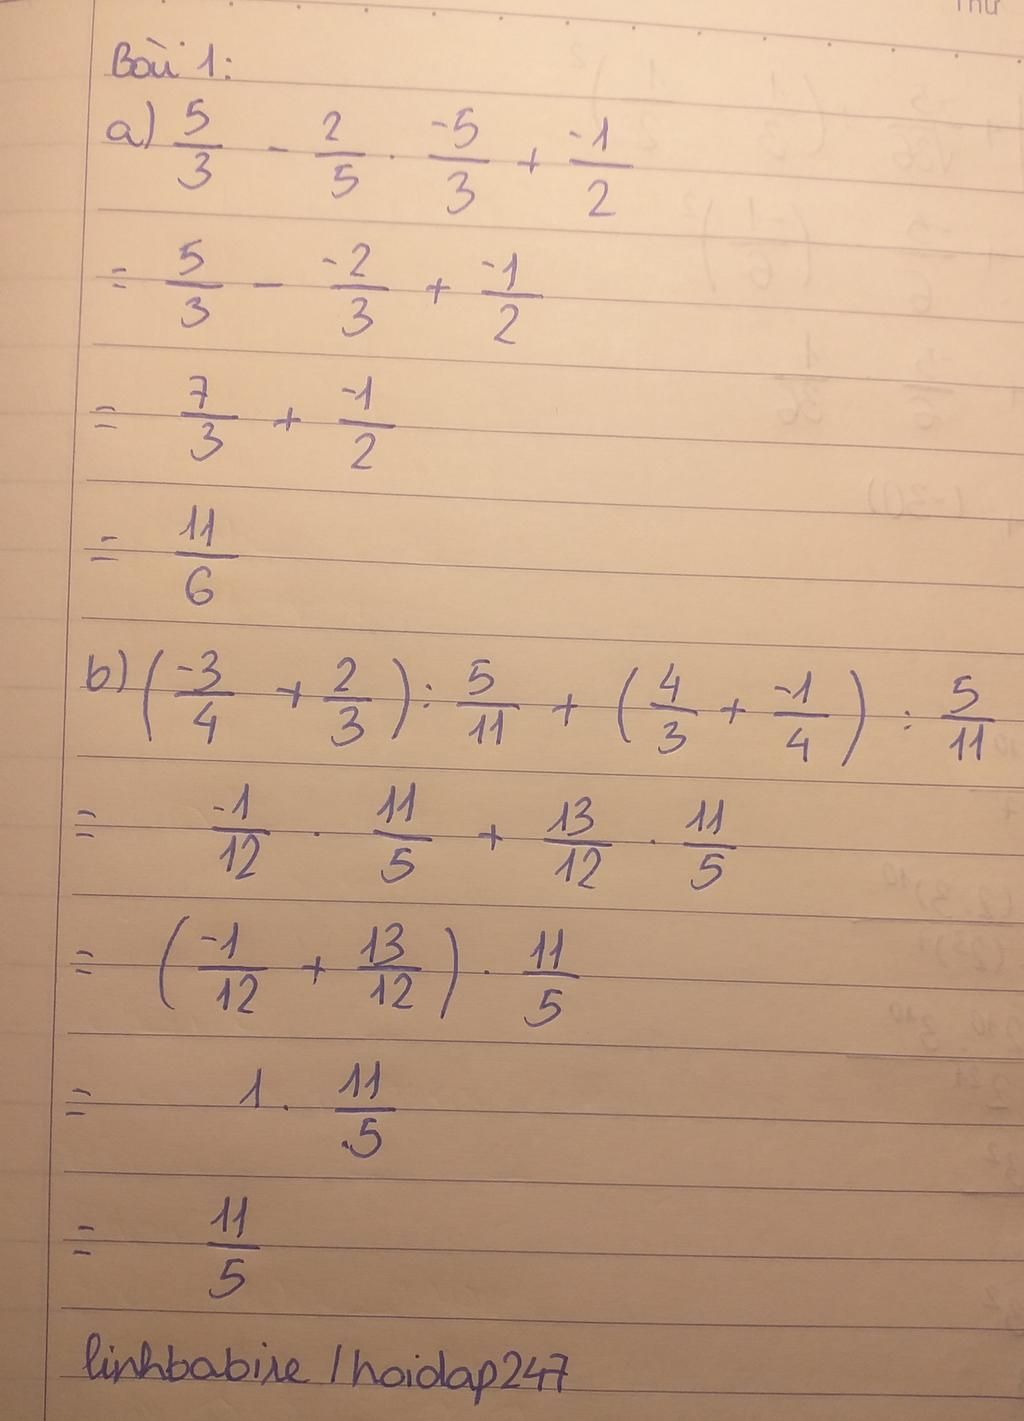 Thứ
Bài 1:
a) 5/3 - 2/5 . -5/3 + -1/2
= 5/3 - -2/3 + -1/2
= 7/3 + -1/2
= 11/6
b) (-3/4 + 2/3) : 5/11 + (4/3 + -1/4) : 5/11
= -1/12 . 11/5 + 13/12 . 11/5
= (-1/12 + 13/12) . 11/5
= 1 . 11/5
= 11/5
linhbabire / hoidap247